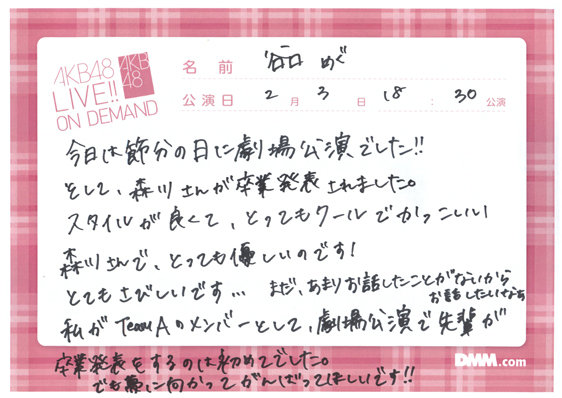 AKB48
LIVE!!
ON DEMAND
AKB
48
名前 谷口 めぐ
公演日 2月3日 18:30公演
今日は節分の日に劇場公演でした!!
そして、森川さんが卒業発表されました。
スタイルが良くて、とってもクールでかっこいい
森川さんで、とっても優しいのです!
とてもさびしいです… まだ、あまりお話したことがないから
お話したいなぁ
私がTeam Aのメンバーとして、劇場公演で先輩が
卒業発表をするのは初めてでした。
でも夢に向かってがんばってほしいです!!
DMM.com